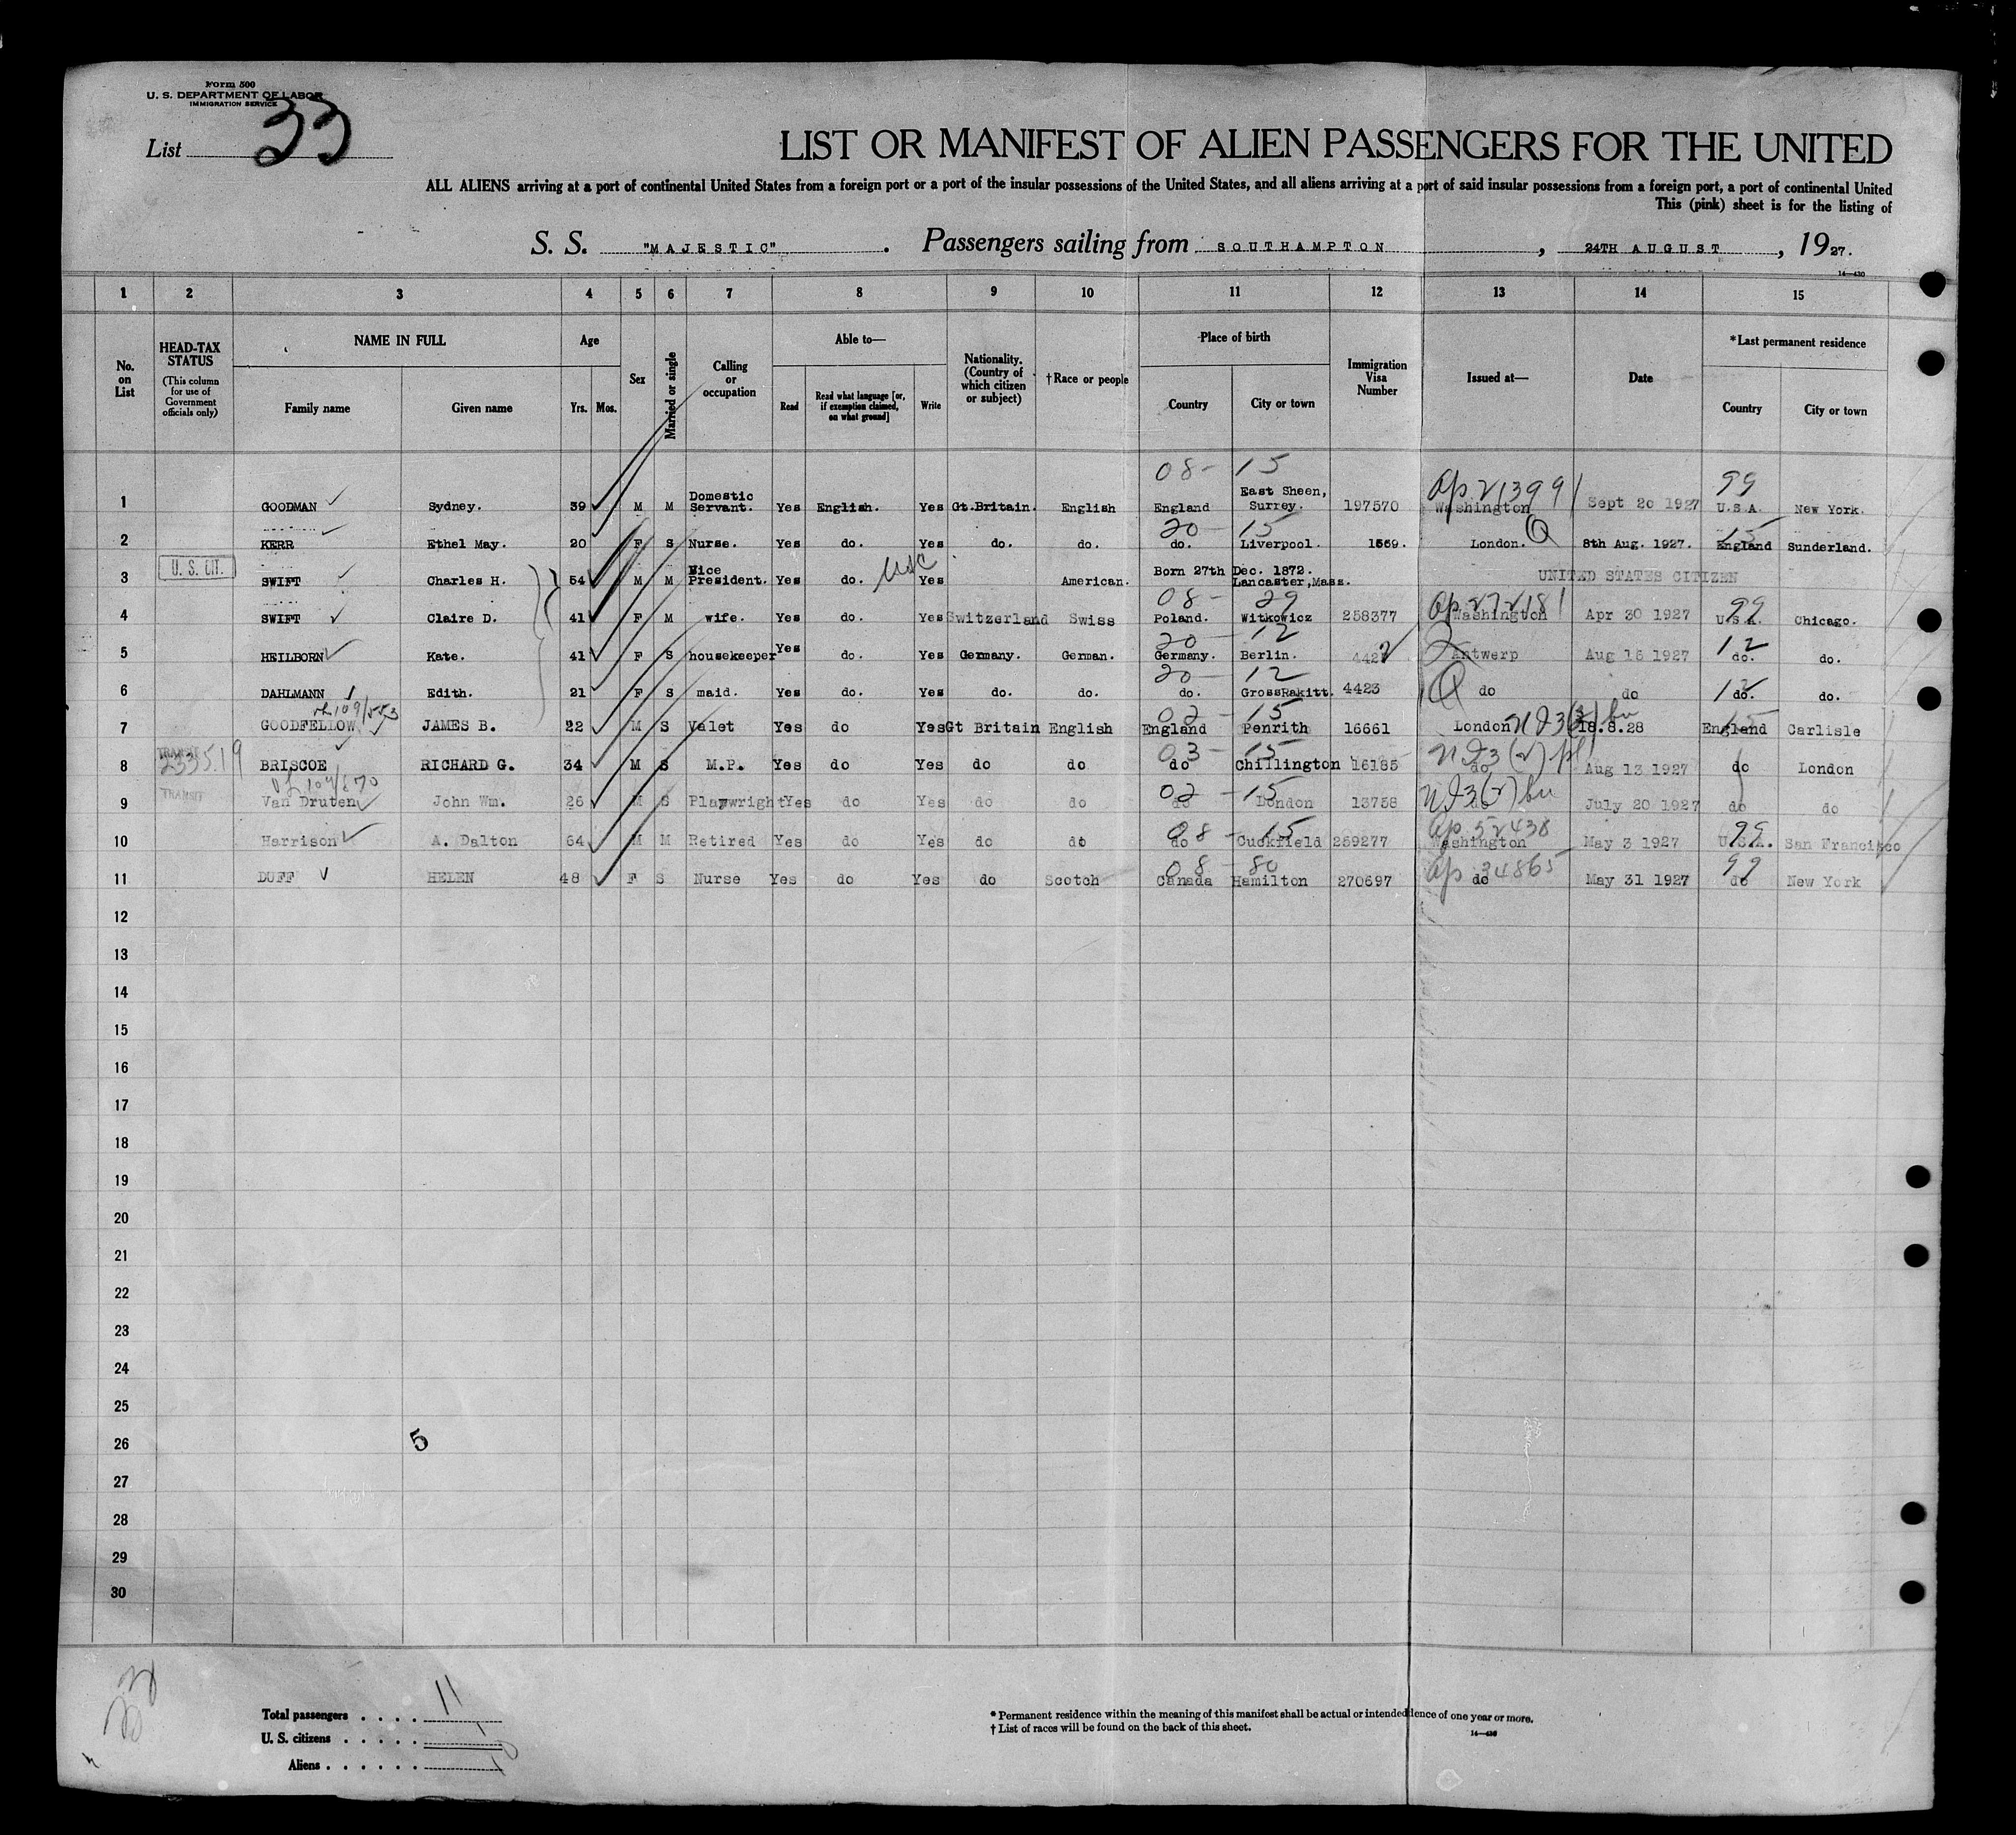 Form 500
U. S. DEPARTMENT OF LABOR
IMMIGRATION SERVICE
List 33
LIST OR MANIFEST OF ALIEN PASSENGERS FOR THE UNITED
ALL ALIENS arriving at a port of continental United States from a foreign port or a port of the insular possessions of the United States, and all aliens arriving at a port of said insular possessions from a foreign port, a port of continental United
This (pink) sheet is for the listing of
S. S. "MAJESTIC". Passengers sailing from SOUTHAMPTON, 24TH AUGUST, 1927.
14—430
1 2 3 4 5 6 7 8 9 10 11 12 13 14 15
No. on List
HEAD-TAX STATUS
(This column for use of Government officials only)
NAME IN FULL
Family name Given name
Age
Yrs. Mos.
Sex
Married or single
Calling or occupation
Able to—
Read
Read what language [or, if exemption claimed, on what ground]
Write
Nationality. (Country of which citizen or subject)
†Race or people
Place of birth
Country City or town
Immigration Visa Number
Issued at—
Date
*Last permanent residence
Country City or town
08- 15 Ap 21399 99
1 GOODMAN Sydney. 39 M M Domestic Servant. Yes English. Yes Gt.Britain. English England East Sheen, Surrey. 197570 Washington Sept 20 1927 U.S.A. New York.
20- 15 Q 15
2 KERR Ethel May. 20 F S Nurse. Yes do. Yes do. do. do. Liverpool. 1559. London. 8th Aug. 1927. England Sunderland.
U. S. CIT.
3 SWIFT Charles H. 54 M M Vice President. Yes do. USC Yes American. Born 27th Dec. 1872. Lancaster, Mass. UNITED STATES CITIZEN
08- 29 Ap 27181 99
4 SWIFT Claire D. 41 F M wife. Yes do. Yes Switzerland Swiss Poland. Witkowicz 258377 Washington Apr 30 1927 U.S.A. Chicago.
20- 12 12
5 HEILBORN Kate. 41 F S housekeeper Yes do. Yes Germany. German. Germany. Berlin. 4422 Antwerp Aug 16 1927 do. do.
20- 12 Q 12
6 DAHLMANN Edith. 21 F S maid. Yes do. Yes do. do. do. GrossRakitt. 4423 do do do. do.
109/553 02- 15
7 GOODFELLOW JAMES B. 22 M S Valet Yes do Yes Gt Britain English England Penrith 16661 London 18.8.28 England Carlisle
TRANSIT 233519 03- 15
8 BRISCOE RICHARD G. 34 M S M.P. Yes do Yes do do do Chillington 16185 do Aug 13 1927 do London
TRANSIT 109/670 02- 15
9 Van Druten John Wm. 26 M S Playwright Yes do Yes do do do London 13758 do July 20 1927 do do
08- 15 Ap 52438 99
10 Harrison A. Dalton 64 M M Retired Yes do Yes do do do Cuckfield 259277 Washington May 3 1927 U.S.A. San Francisco
08- 80 Ap 34865 99
11 DUFF HELEN 48 F S Nurse Yes do Yes do Scotch Canada Hamilton 270697 do May 31 1927 do New York
12
13
14
15
16
17
18
19
20
21
22
23
24
25
26 5
27
28
29
30
Total passengers . . . . 11
U. S. citizens . . . . . 1
Aliens . . . . . . 10
* Permanent residence within the meaning of this manifest shall be actual or intended dence of one year or more.
† List of races will be found on the back of this sheet.
14—430